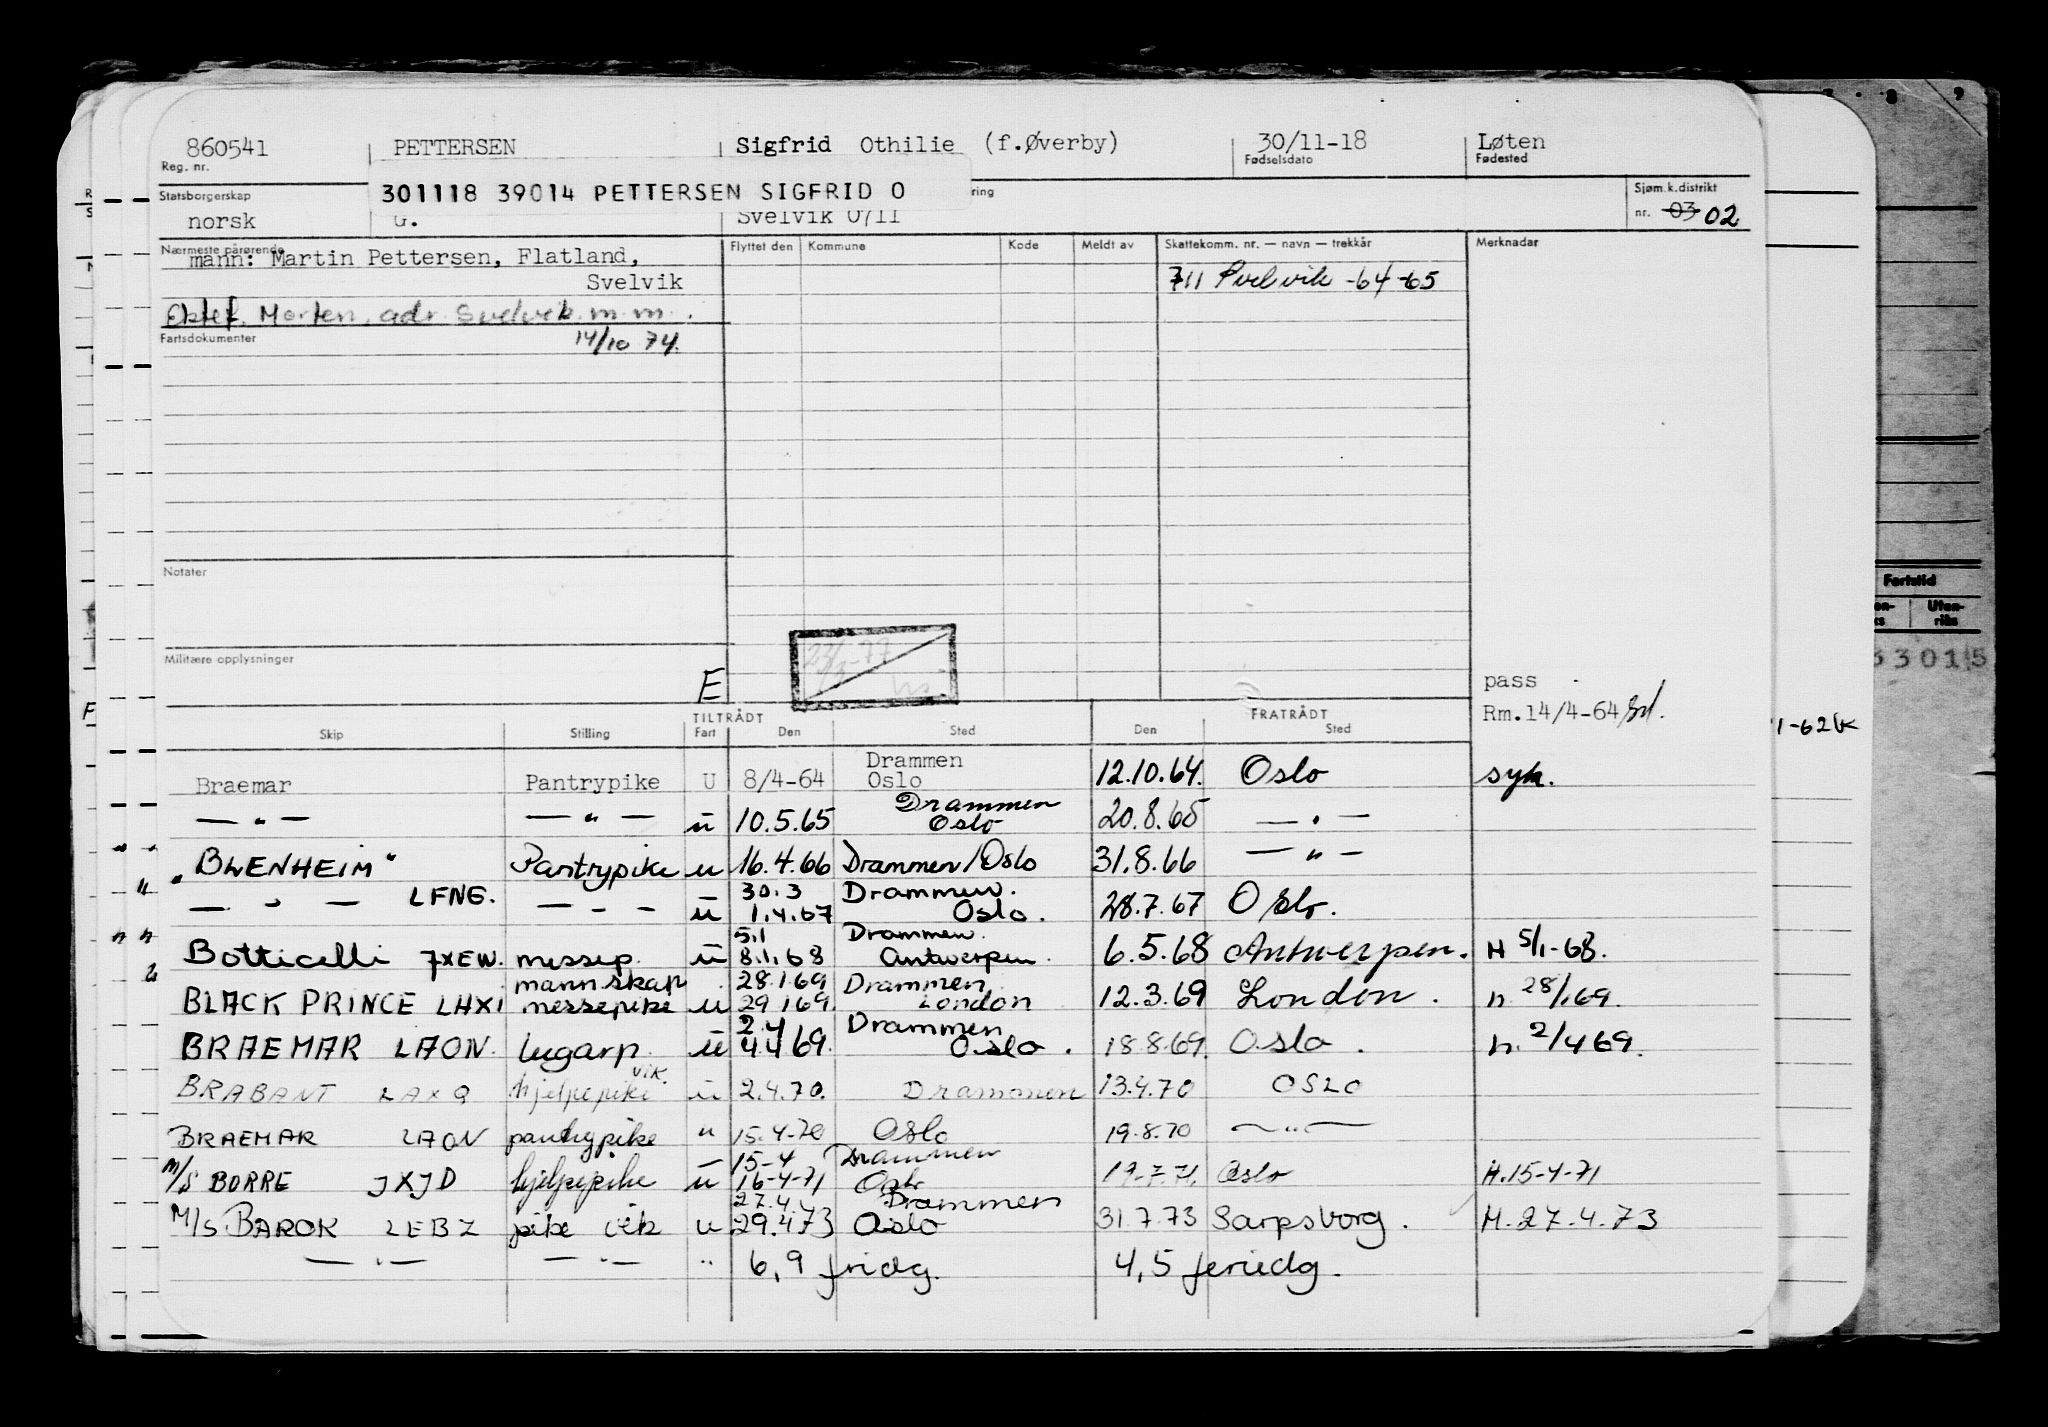 860541 PETTERSEN Sigfrid Othilie (f.Øverby) 30/11-18 Løten
Reg. nr. Fødselsdato Fødested
301118 39014 PETTERSEN SIGFRID O
Statsborgerskap ring Sjøm.k.distrikt
norsk G. Svelvik 0711 nr. 03 02
Nærmeste pårørende Flyttet den Kommune Kode Meldt av Skattekomm. nr. — navn — trekkår Merknader
mann: Martin Pettersen, Flatland,
Svelvik
711 Svelvik -64-65
Ektef. Morten, adr. Svelvik m.m.
Fartsdokumenter 14/10 74.
Notater
Militære opplysninger
E
pass
Rm.14/4-64
TILTRÅDT FRATRÅDT
Skip Stilling Fart Den Sted Den Sted
Braemar Pantrypike U 8/4-64 Drammen Oslo 12.10.64. Oslo syk.
— " — — " — u 10.5.65 Drammen Oslo 20.8.65 — " —
"BLENHEIM" Pantrypike u 16.4.66 Drammen/Oslo 31.8.66 — " —
— " — LFNG. — " — u 30.3 1.4.67 Drammen. Oslo. 28.7.67 Oslo.
Botticelli JXEW. messep. u 5.1 8.1.68 Drammen. Antwerpen. 6.5.68 Antwerpen. H 5/1-68.
BLACK PRINCE LHXI mannskap messepike u 28.1.69 29.1.69. Drammen London 12.3.69 London. h. 28/1 69.
BRAEMAR LAON. lugarp. u 2.4 4.4 69. Drammen Oslo. 18.8.69. Oslo. h. 2/4 69.
BRABANT LAXQ vik. hjelpepike u 2.4.70. Drammen 13.4.70 OSLO
BRAEMAR LAON pantrypike " 15.4-70 Oslo 19.8.70 — " —
M/S BORRE JXJD hjelpepike u 15-4 16-4-71 Drammen Oslo 19-7-71. Oslo H.15-4-71
M/S BAROK LEBZ pike vik u 27.4. 29.4.73 Drammen Oslo 31.7.73 Sarpsborg. H. 27.4.73
— " — — " — " 6,9 fridg. 4,5 feriedg.
Fartstid
Uten-
riks
33015
1-62